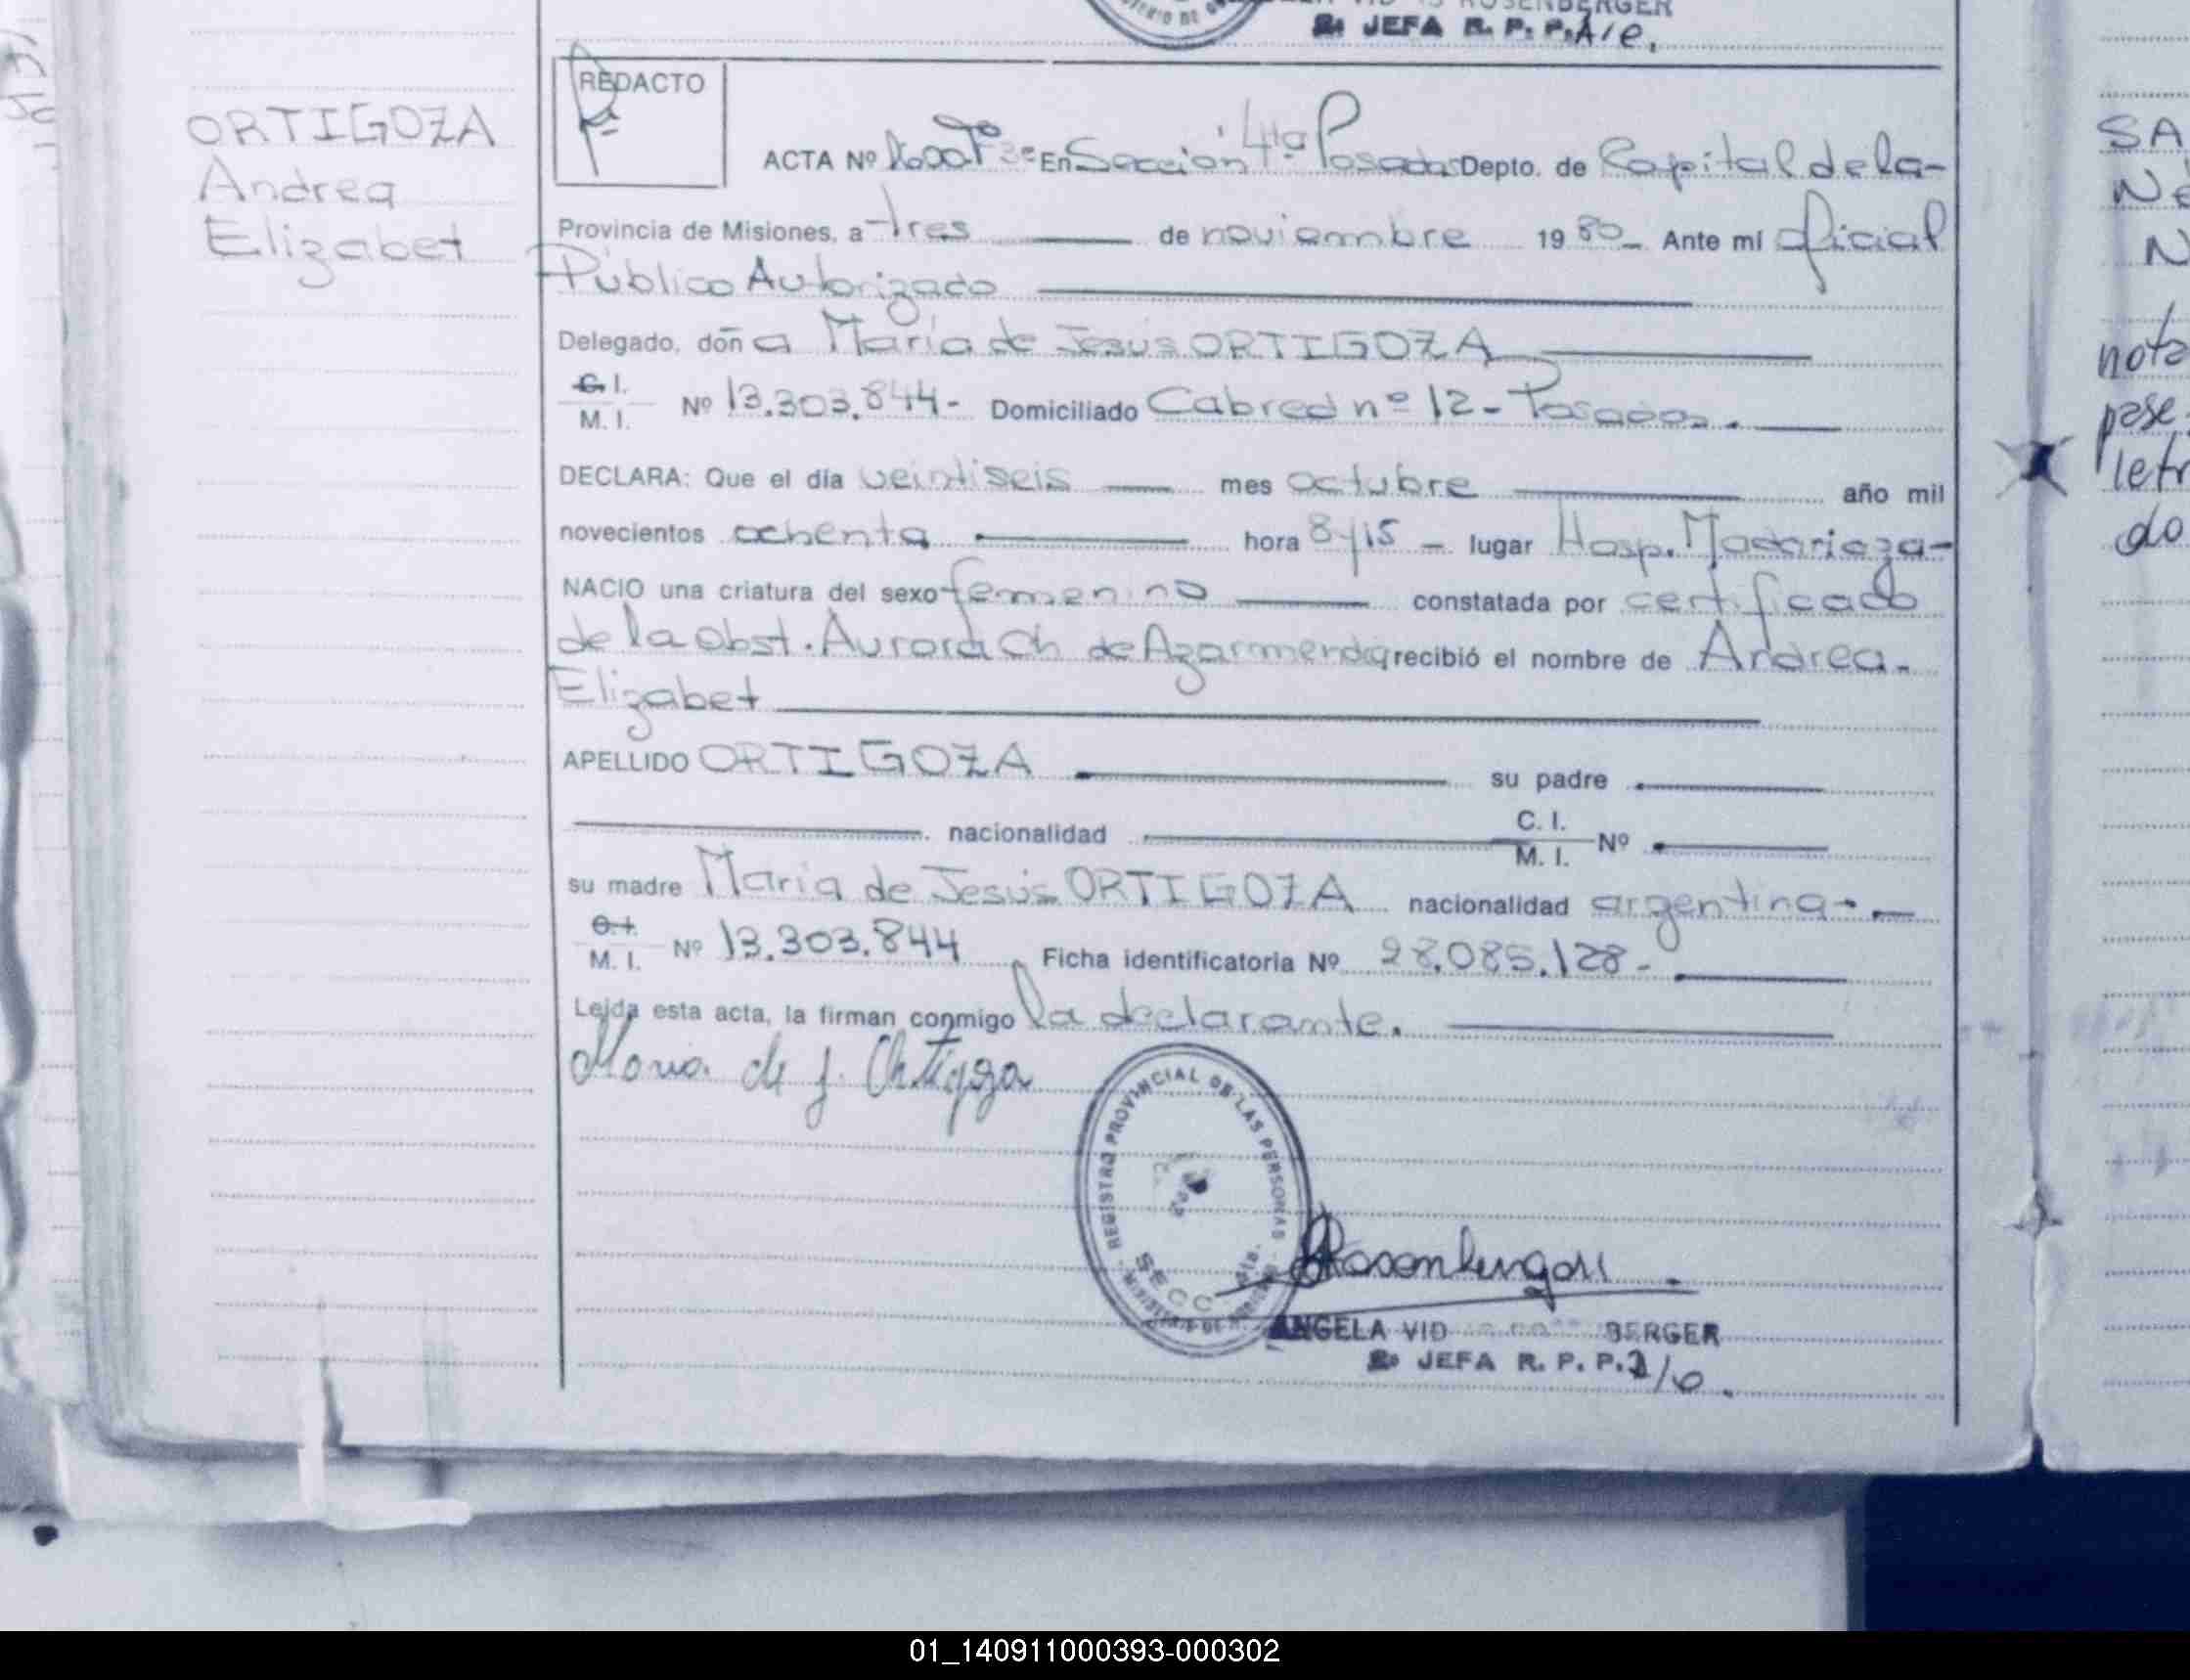 ROSENBERGER
JEFA R. P. P. A/c.
REDACTO
ORTIGOZA
Andrea
Elizabet
ACTA Nº 1600 Tº 3º En Sección 4ta Posadas Depto. de Capital de la-
Provincia de Misiones, a tres de noviembre 1980 Ante mí oficial
Público Autorizado
Delegado, doña María de Jesús ORTIGOZA
C. I.
M. I. Nº 13.303.844- Domiciliado Cabred nº 12 - Posadas.
DECLARA: Que el día veintiseis mes octubre año mil
novecientos ochenta hora 8/15 - lugar Hosp. Madariaga-
NACIO una criatura del sexo femenino constatada por certificado
de la obst. Aurora Ch de Azarmendia recibió el nombre de Andrea-
Elizabet
APELLIDO ORTIGOZA su padre
nacionalidad C. I.
M. I. Nº
su madre María de Jesús ORTIGOZA nacionalidad argentina-
C. I.
M. I. Nº 13.303.844 Ficha identificatoria Nº 28.085.128-
Leida esta acta, la firman conmigo la declarante.
Maria de J. Ortigoza
REGISTRO PROVINCIAL DE LAS PERSONAS
SECC 4ta.
MINISTERIO DE
Rosenberger
ANGELA VID BERGER
JEFA R. P. P.
SA
nota
pase
letr
do
01_140911000393-000302